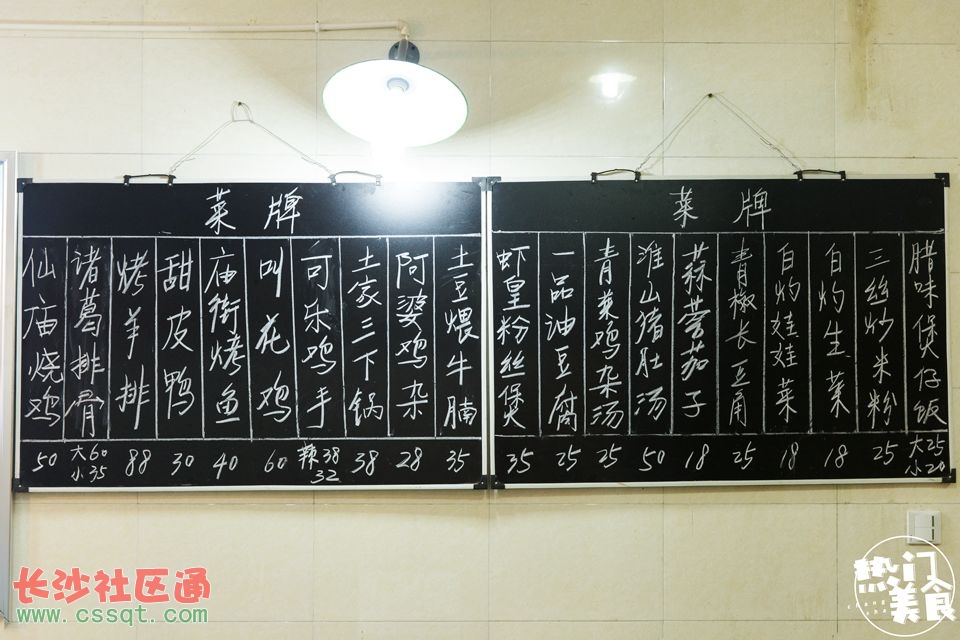 菜牌
仙庙烧鸡
50
诸葛排骨
大60
小35
烤羊排
88
甜皮鸭
30
庙街烤鱼
40
叫花鸡
60
可乐鸡手
辣38
32
土家三下锅
38
阿婆鸡杂
28
土豆煨牛腩
35
菜牌
虾皇粉丝煲
35
一品油豆腐
25
青菜鸡杂汤
25
淮山猪肚汤
50
蒜蓉茄子
18
青椒长豆角
25
白灼娃娃菜
18
白灼生菜
18
三丝炒米粉
25
腊味煲仔饭
大25
小20
长沙社区通
www.cssqt.com
热门
美食